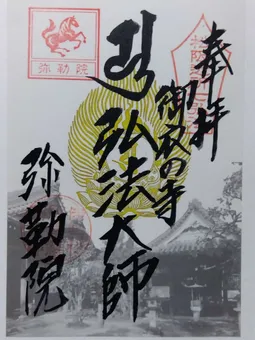 奉拝
の寺
弘法大師
弥勒院
弥勒院